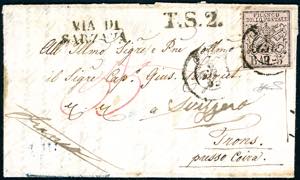 VIA DI
SARZANA
T.S.2.
FRANCO
BOLLO POSTALE
BAJ. 6
All' Illmo Sigre e Pne Colmo
il Sigre Cap. Gius.
Svizzera
Trons
presso Coira
Franca